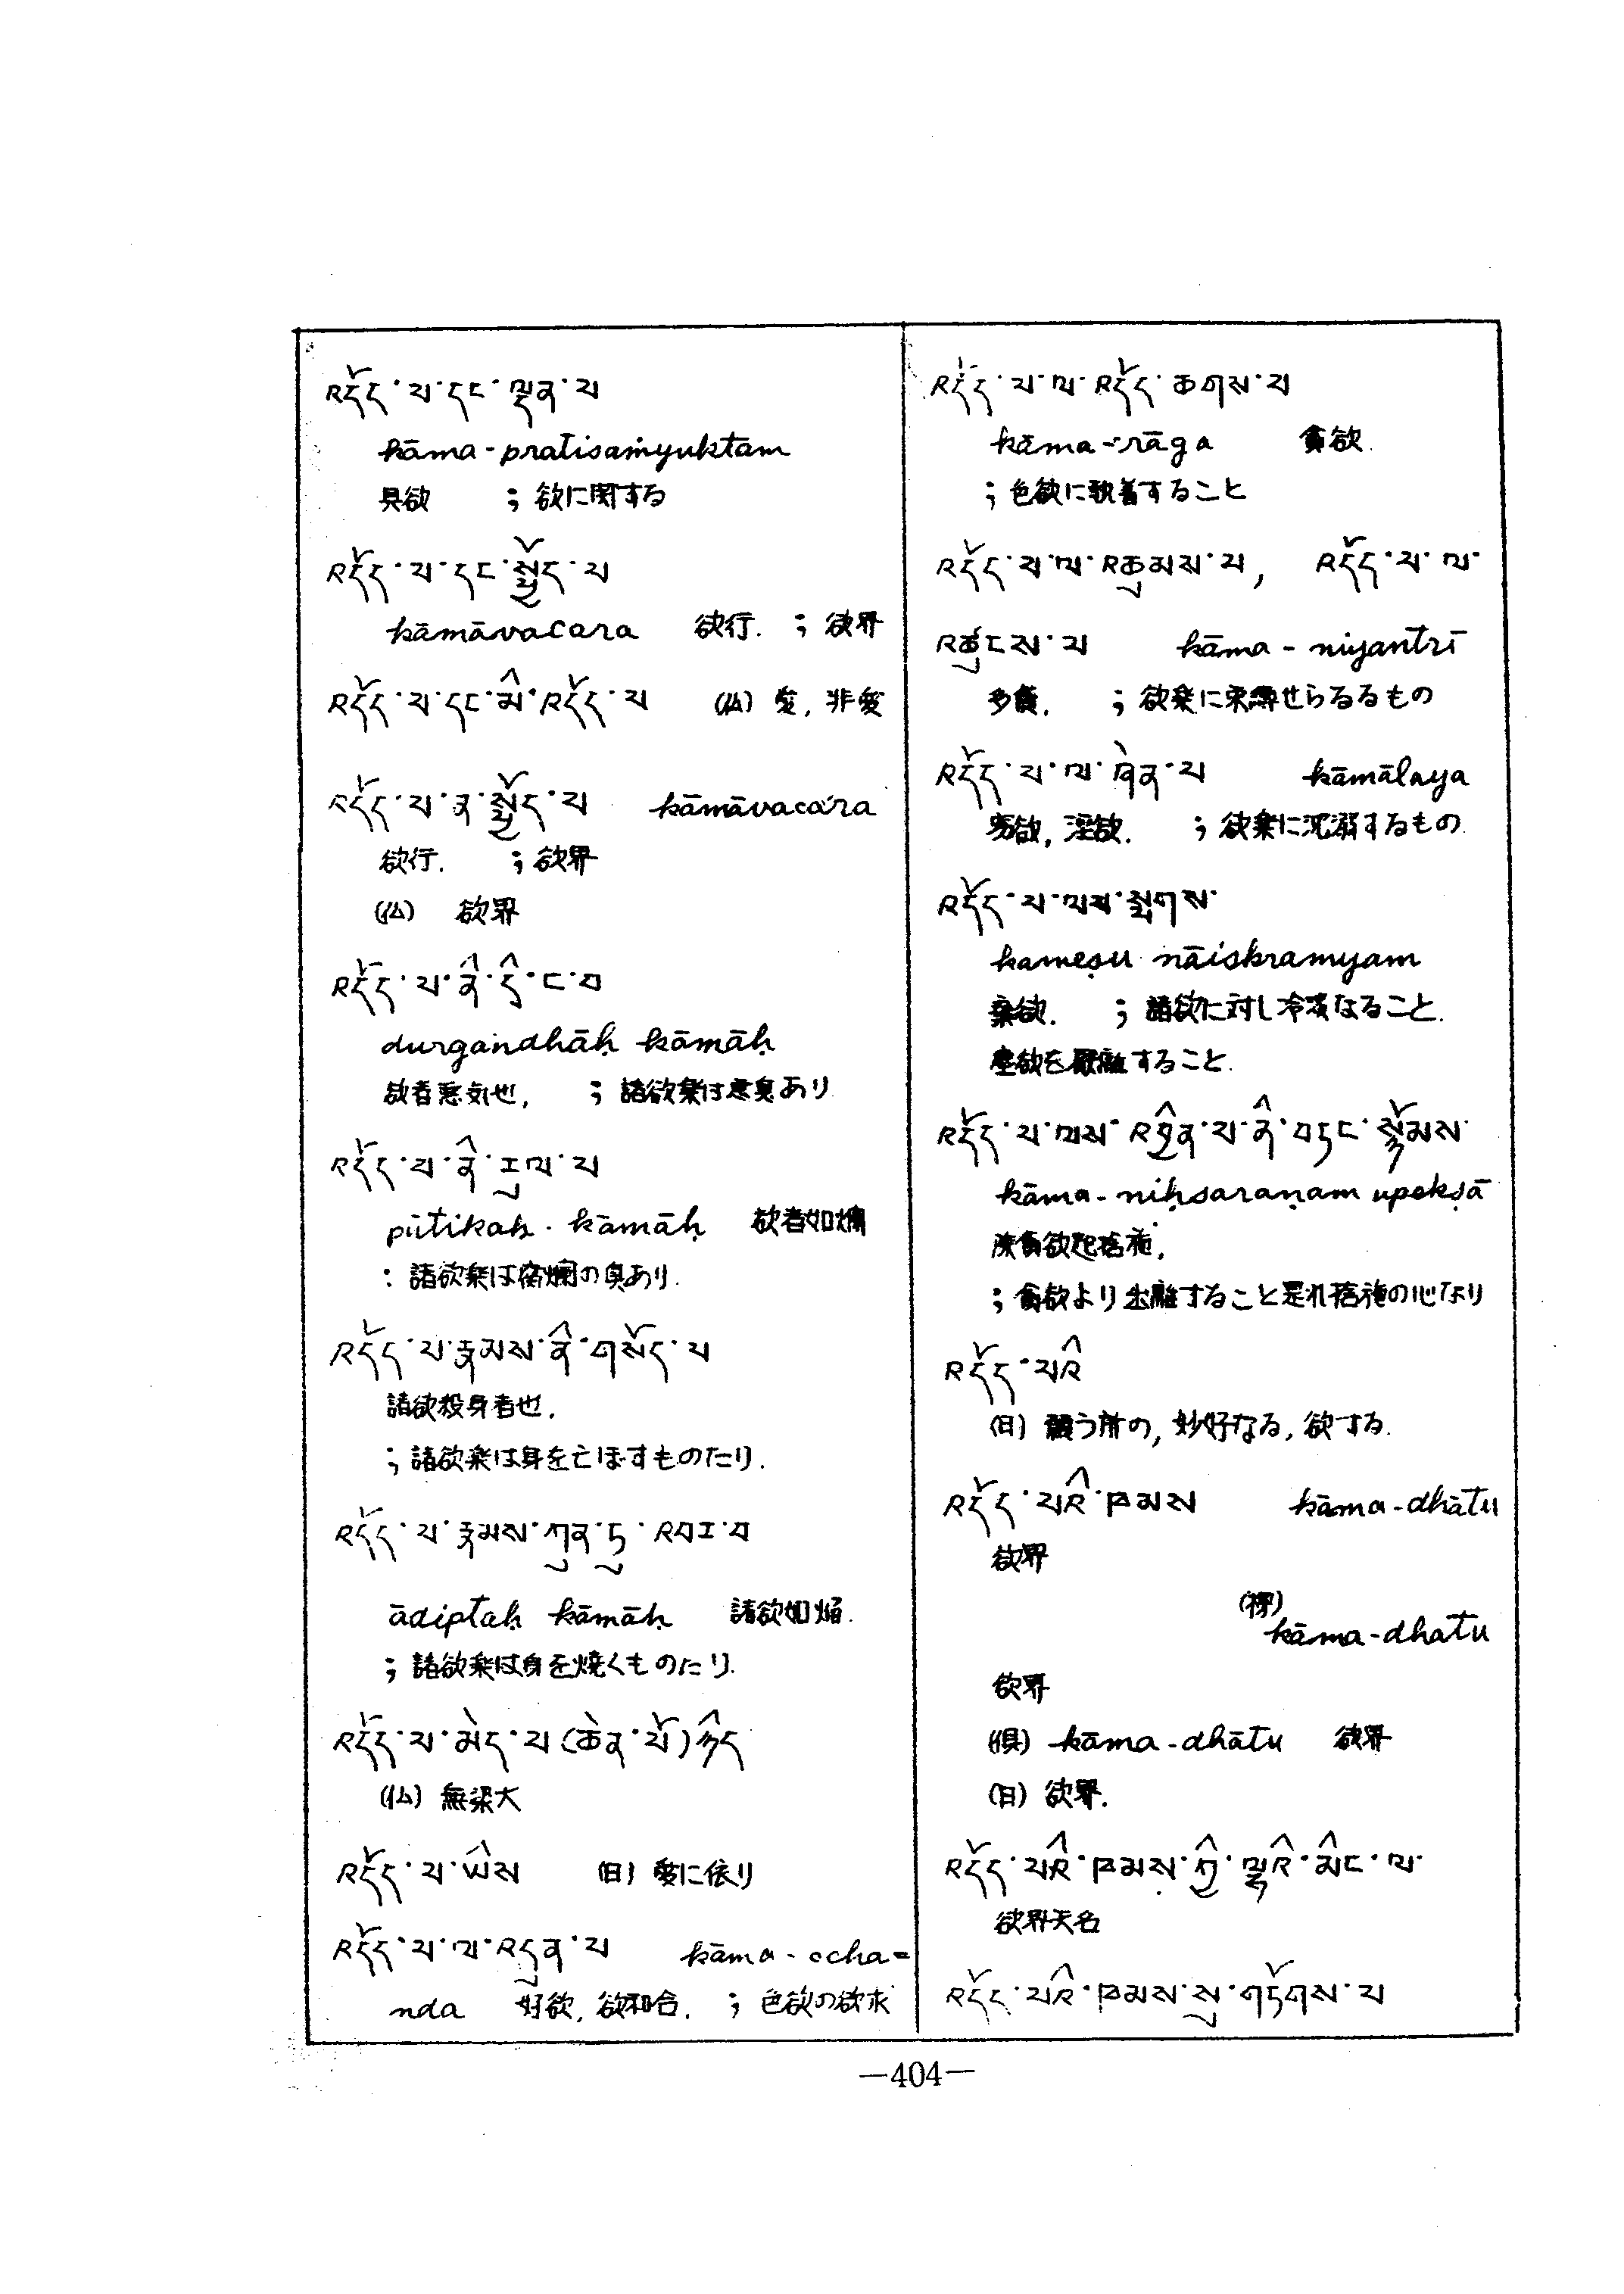 འདོད་པ་དང་ལྡན་པ
kāma-pratisaṁyuktam
具欲 ; 欲に関する
འདོད་པ་དང་སྤྱོད་པ
kāmāvacara 欲行. ; 欲界
འདོད་པ་དང་མི་འདོད་པ (仏) 愛, 非愛
འདོད་པ་ན་སྤྱོད་པ kāmāvacara
欲行. ; 欲界
(仏) 欲界
འདོད་པ་ནི་དྲི་ང་བ
durgandhāḥ kāmāḥ
欲者悪気也, ; 諸欲楽は悪臭あり
འདོད་པ་ནི་རུལ་པ
pūtikaḥ. kāmāḥ 欲者如爛
: 諸欲楽は腐爛の臭あり.
འདོད་པ་རྣམས་ནི་གསོད་པ
諸欲殺身者也.
; 諸欲楽は身を亡ほすものたり.
འདོད་པ་རྣམས་ཀུན་ཏུ་འབར་བ
ādiptaḥ kāmāḥ 諸欲如焔.
; 諸欲楽は身を焼くものたり.
འདོད་པ་མེད་པ(ཆེན་པོ)ཉིད
(仏) 無染大
འདོད་པ་ཡིས (日) 愛に依り
འདོད་པ་ལ་འདུན་པ kāma-ccha=
nda 好欲, 欲和合. ; 色欲の欲求
འདོད་པ་ལ་འདོད་ཆགས་པ
kāma-rāga 貪欲.
; 色欲に執着すること
འདོད་པ་ལ་འཆུམས་པ, འདོད་པ་ལ་
འཚུངས་པ kāma-niyantrī
多貪. ; 欲楽に束縛せらるるもの
འདོད་པ་ལ་ཞེན་པ kāmālaya
努欲, 淫欲. ; 欲楽に沉溺するもの.
འདོད་པ་ལས་སྤྲགས་
kameṣu nāiskramyam
棄欲. ; 諸欲に対し冷淡なること.
塵欲を厭離すること.
འདོད་པ་ལས་འབྱིན་པ་ནི་བཏང་སྙོམས་
kāma-niḥsaraṇam upekṣā
除貪欲起捨施.
; 貪欲より出離すること是れ捨施の心なり
འདོད་པའི
(日) 願う所の, 妙好なる, 欲する.
འདོད་པའི་ཁམས kāma-dhātu
欲界
(梛)
kāma-dhatu
欲界
(倶) kāma-dhātu 欲界
(日) 欲界.
འདོད་པའི་ཁམས་ཀྱི་ལྷའི་མིང་ལ་
欲界天名
འདོད་པའི་ཁམས་སུ་གཏོགས་པ
—404—